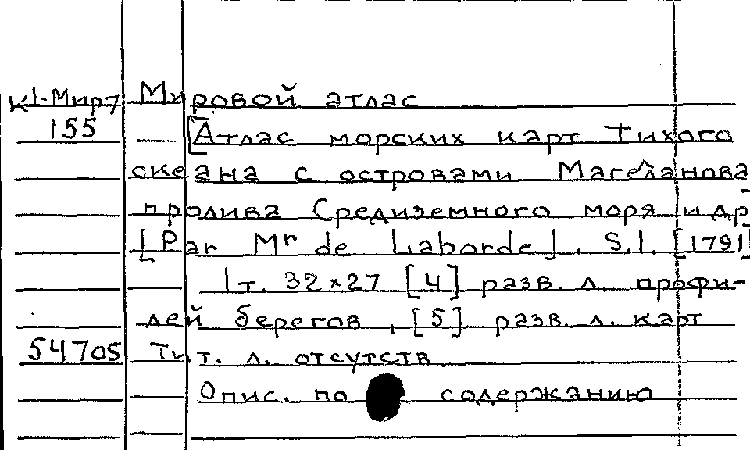 К1-Мир7 Мировой атлас
155 [Атлас морских карт Тихого
океана с островами Магелланова
пролива Средиземного моря и др]
[Par Mr de Laborde]. S.l. [1791]
1т. 32×27 [4] разв. л. профи-
лей берегов, [5] разв. л. карт
54705 Тит. л. отсутств
Опис. по содержанию